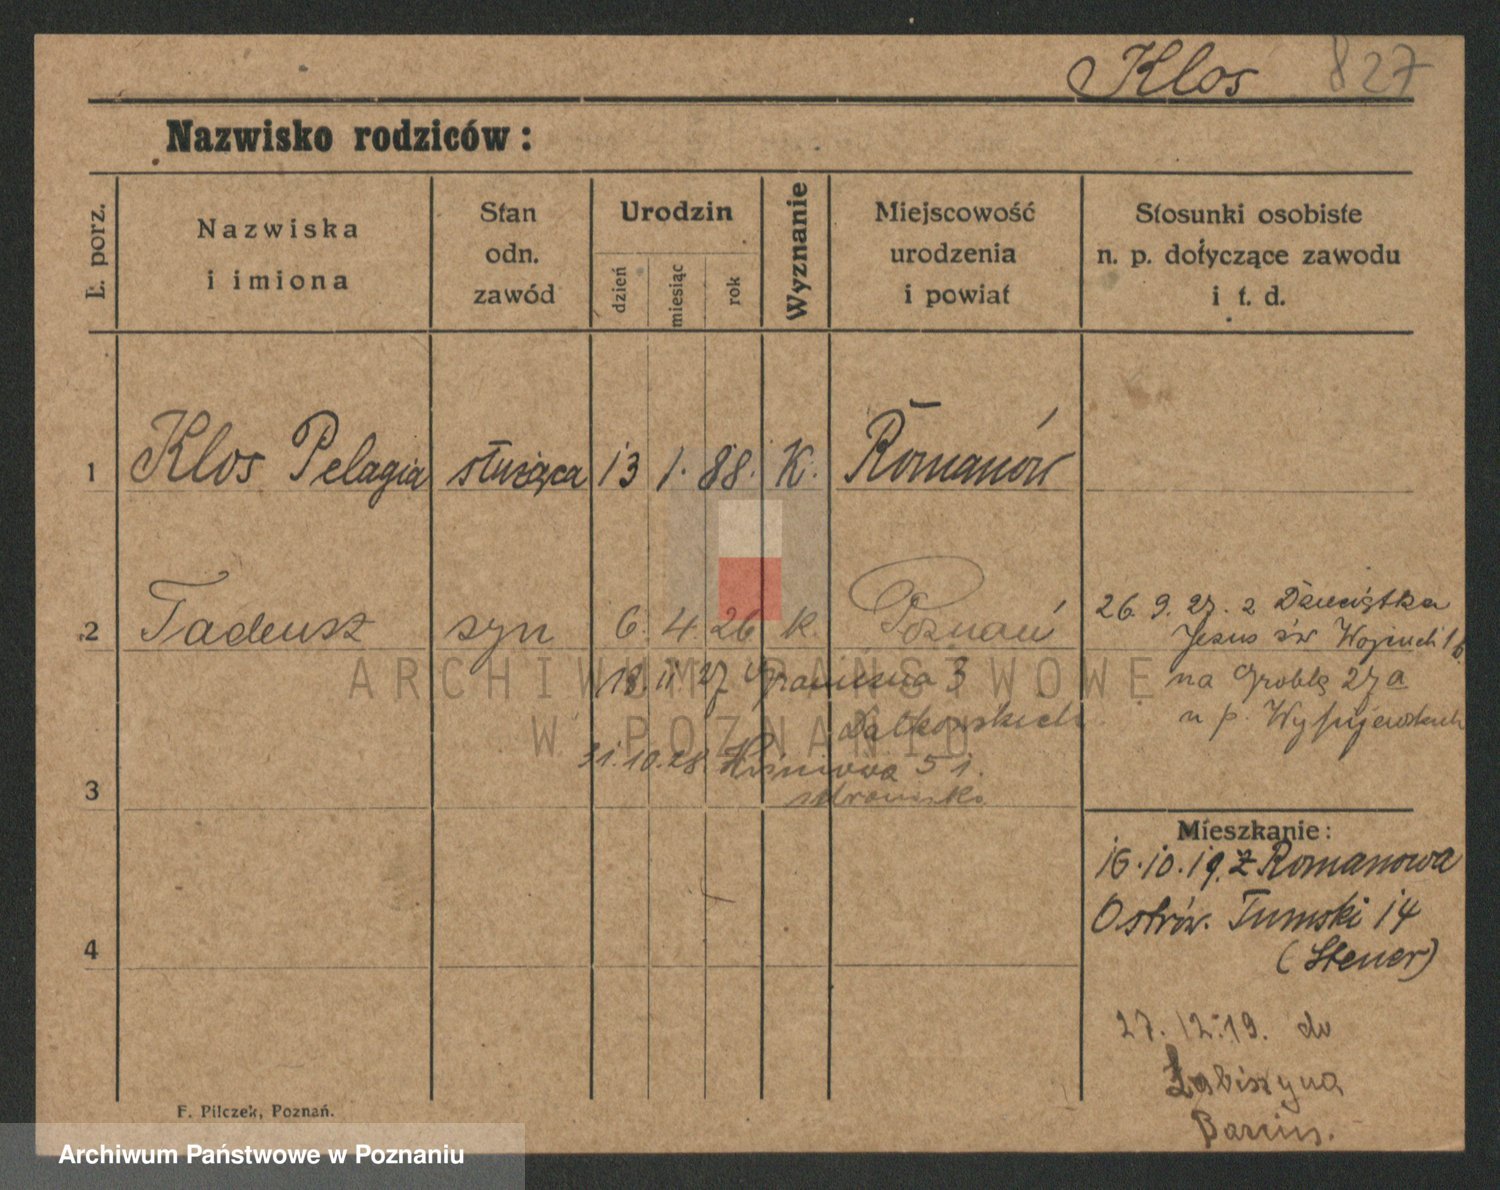 Klos 827
Nazwisko rodziców:
Ł. porz.
Nazwiska
i imiona
Stan
odn.
zawód
Urodzin
dzień
miesiąc
rok
Wyznanie
Miejscowość
urodzenia
i powiat
Stosunki osobiste
n. p. dotyczące zawodu
i t. d.
1 Klos Pelagia służąca 13 1. 88. K. Romanów
2 Tadeusz syn 6. 4. 26 k. Poznań
26. 9. 27. z Dzieciątka
Jezus św Wojciech
na Groblę 27a
u p.
18. 11. 27 Graniczna 3
31. 10. 28.
3
Mieszkanie:
16. 10. 19. z Romanowa
Ostrów. Tumski 14
(Stener)
4
27. 12. 19. do
Łabiszyna
Barcin.
F. Pilczek, Poznań.
ARCHIWUM PAŃSTWOWE
W POZNANIU
Archiwum Państwowe w Poznaniu